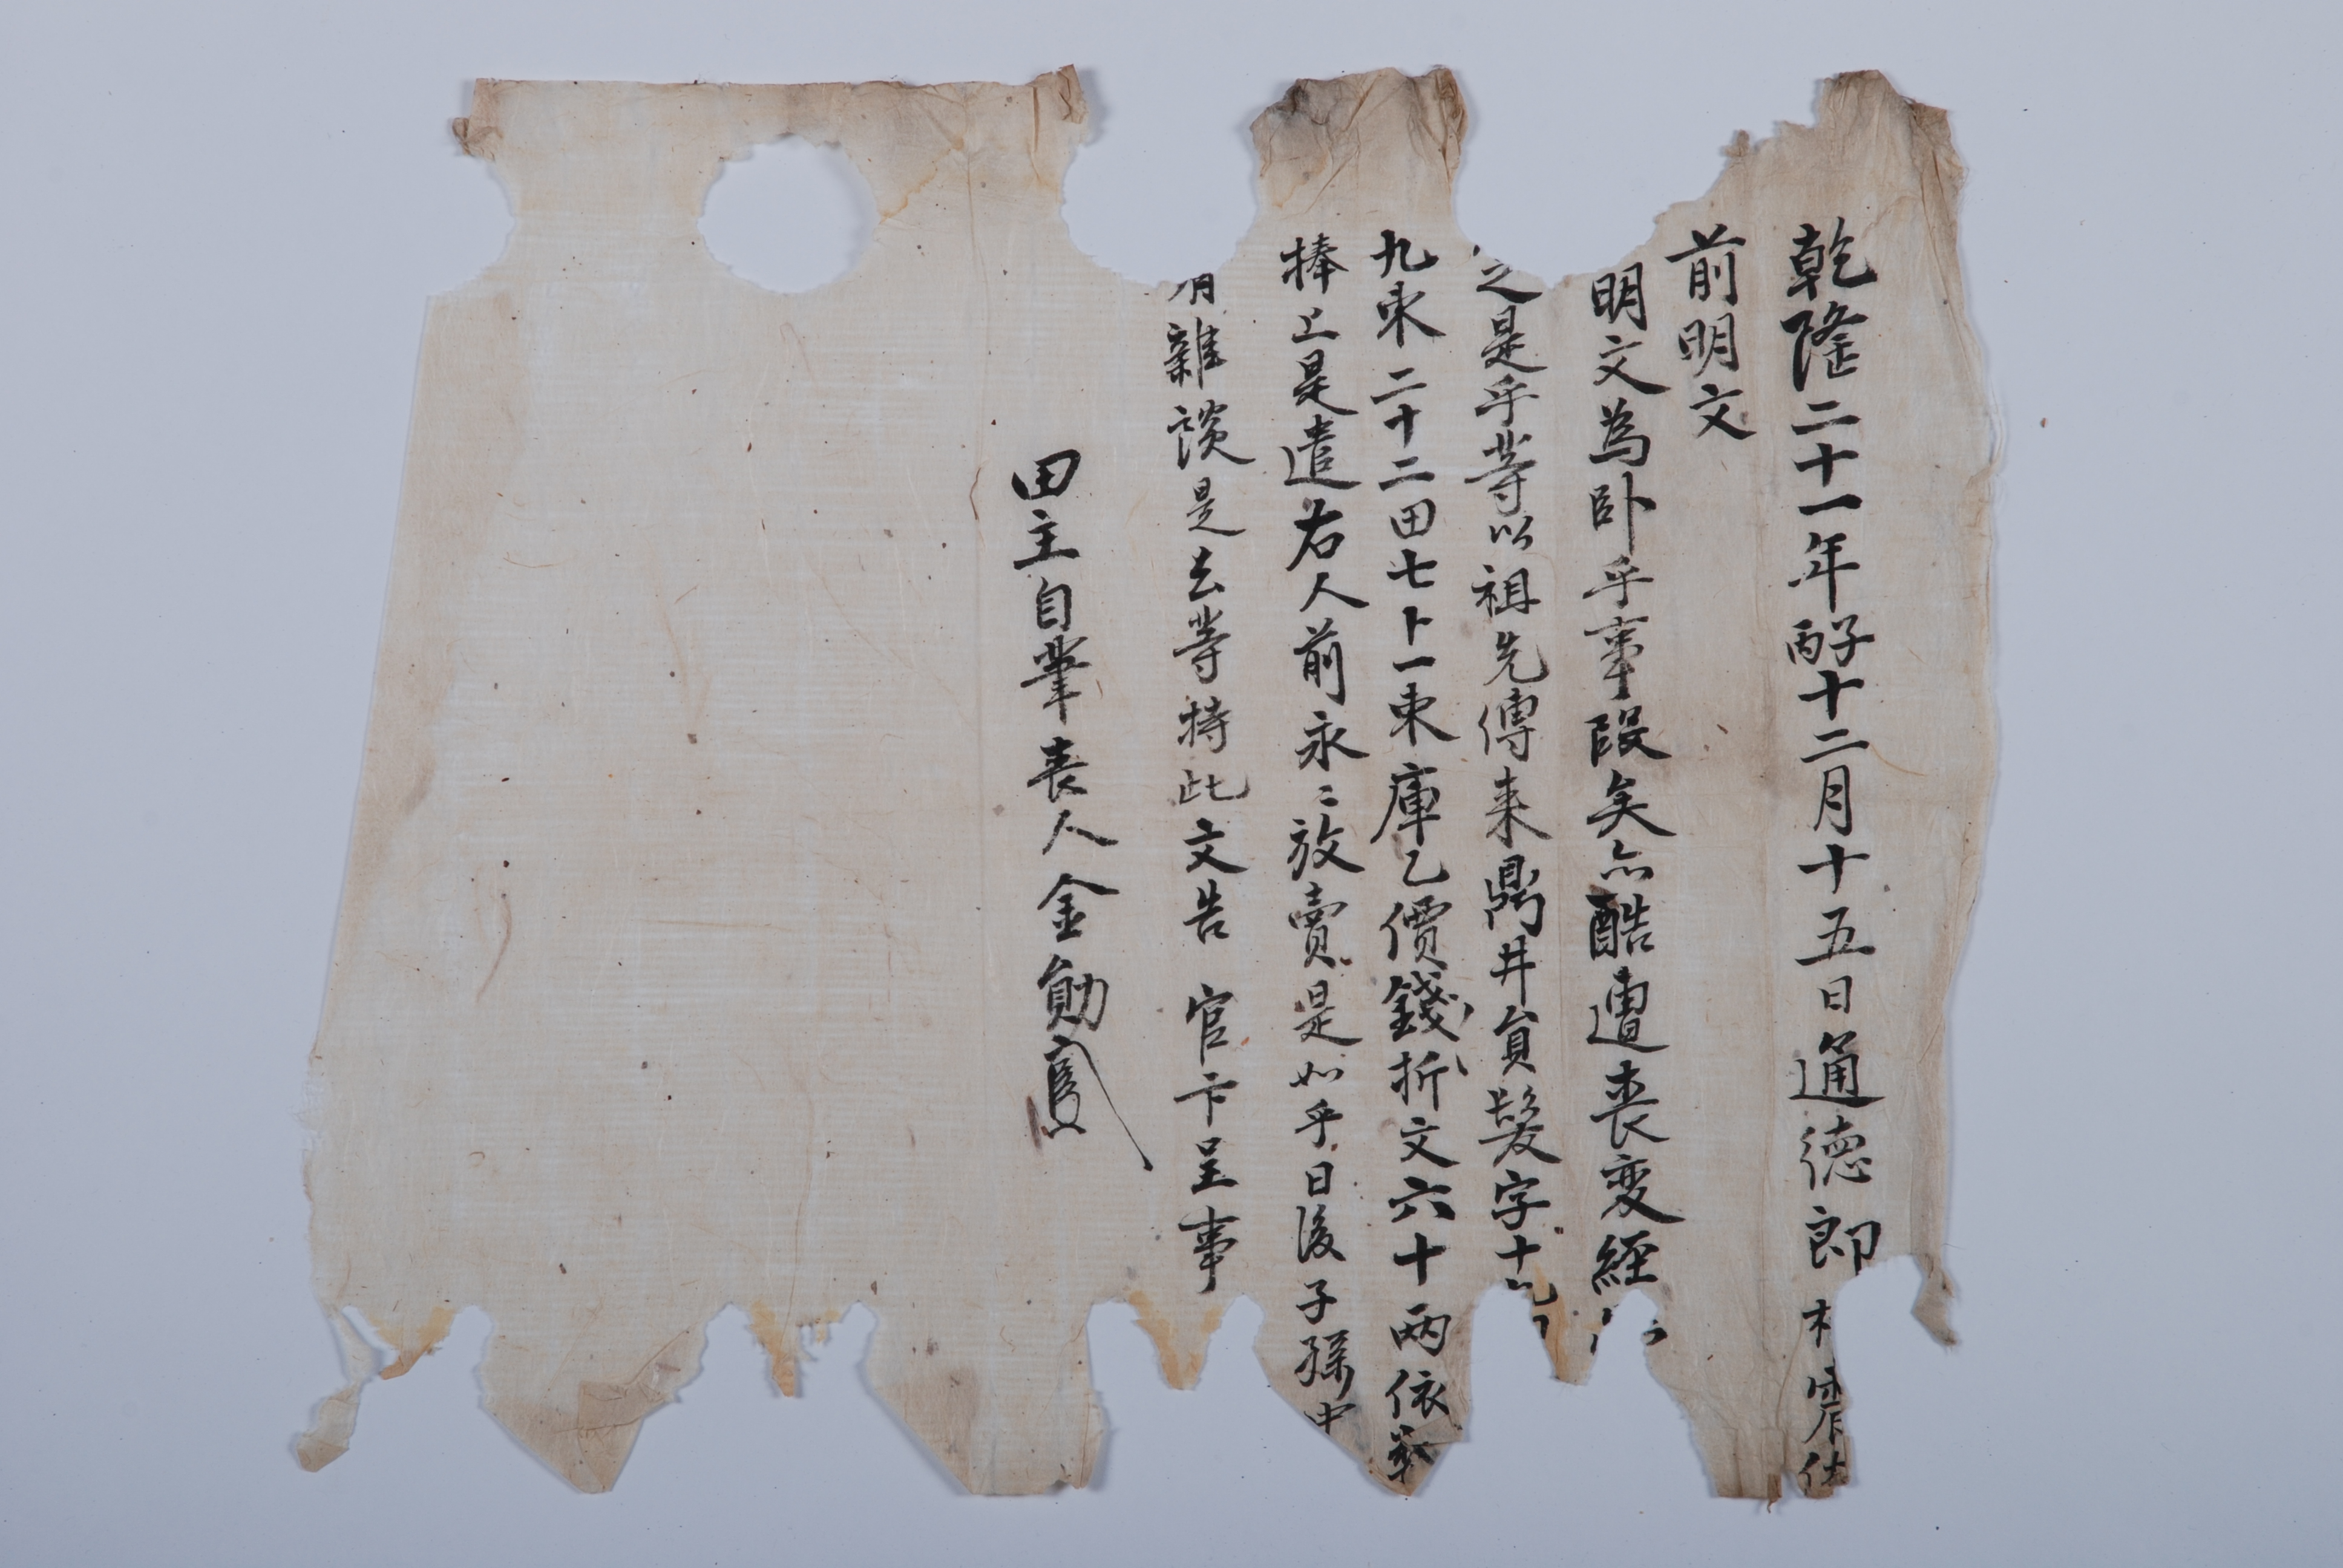 乾隆二十一年丙子十二月十五日通德郎
前明文
明文為卧乎事段矣亦酷遭喪変經
之是乎等以祖先傳来鼎井員髮字十
九束二十二田七卜一束庫乙價錢折文六十兩依
捧上是遣右人前永〻放賣是如乎日後子孫中
有雜談是去等持此文告 官卞呈事
田主自筆喪人金勛